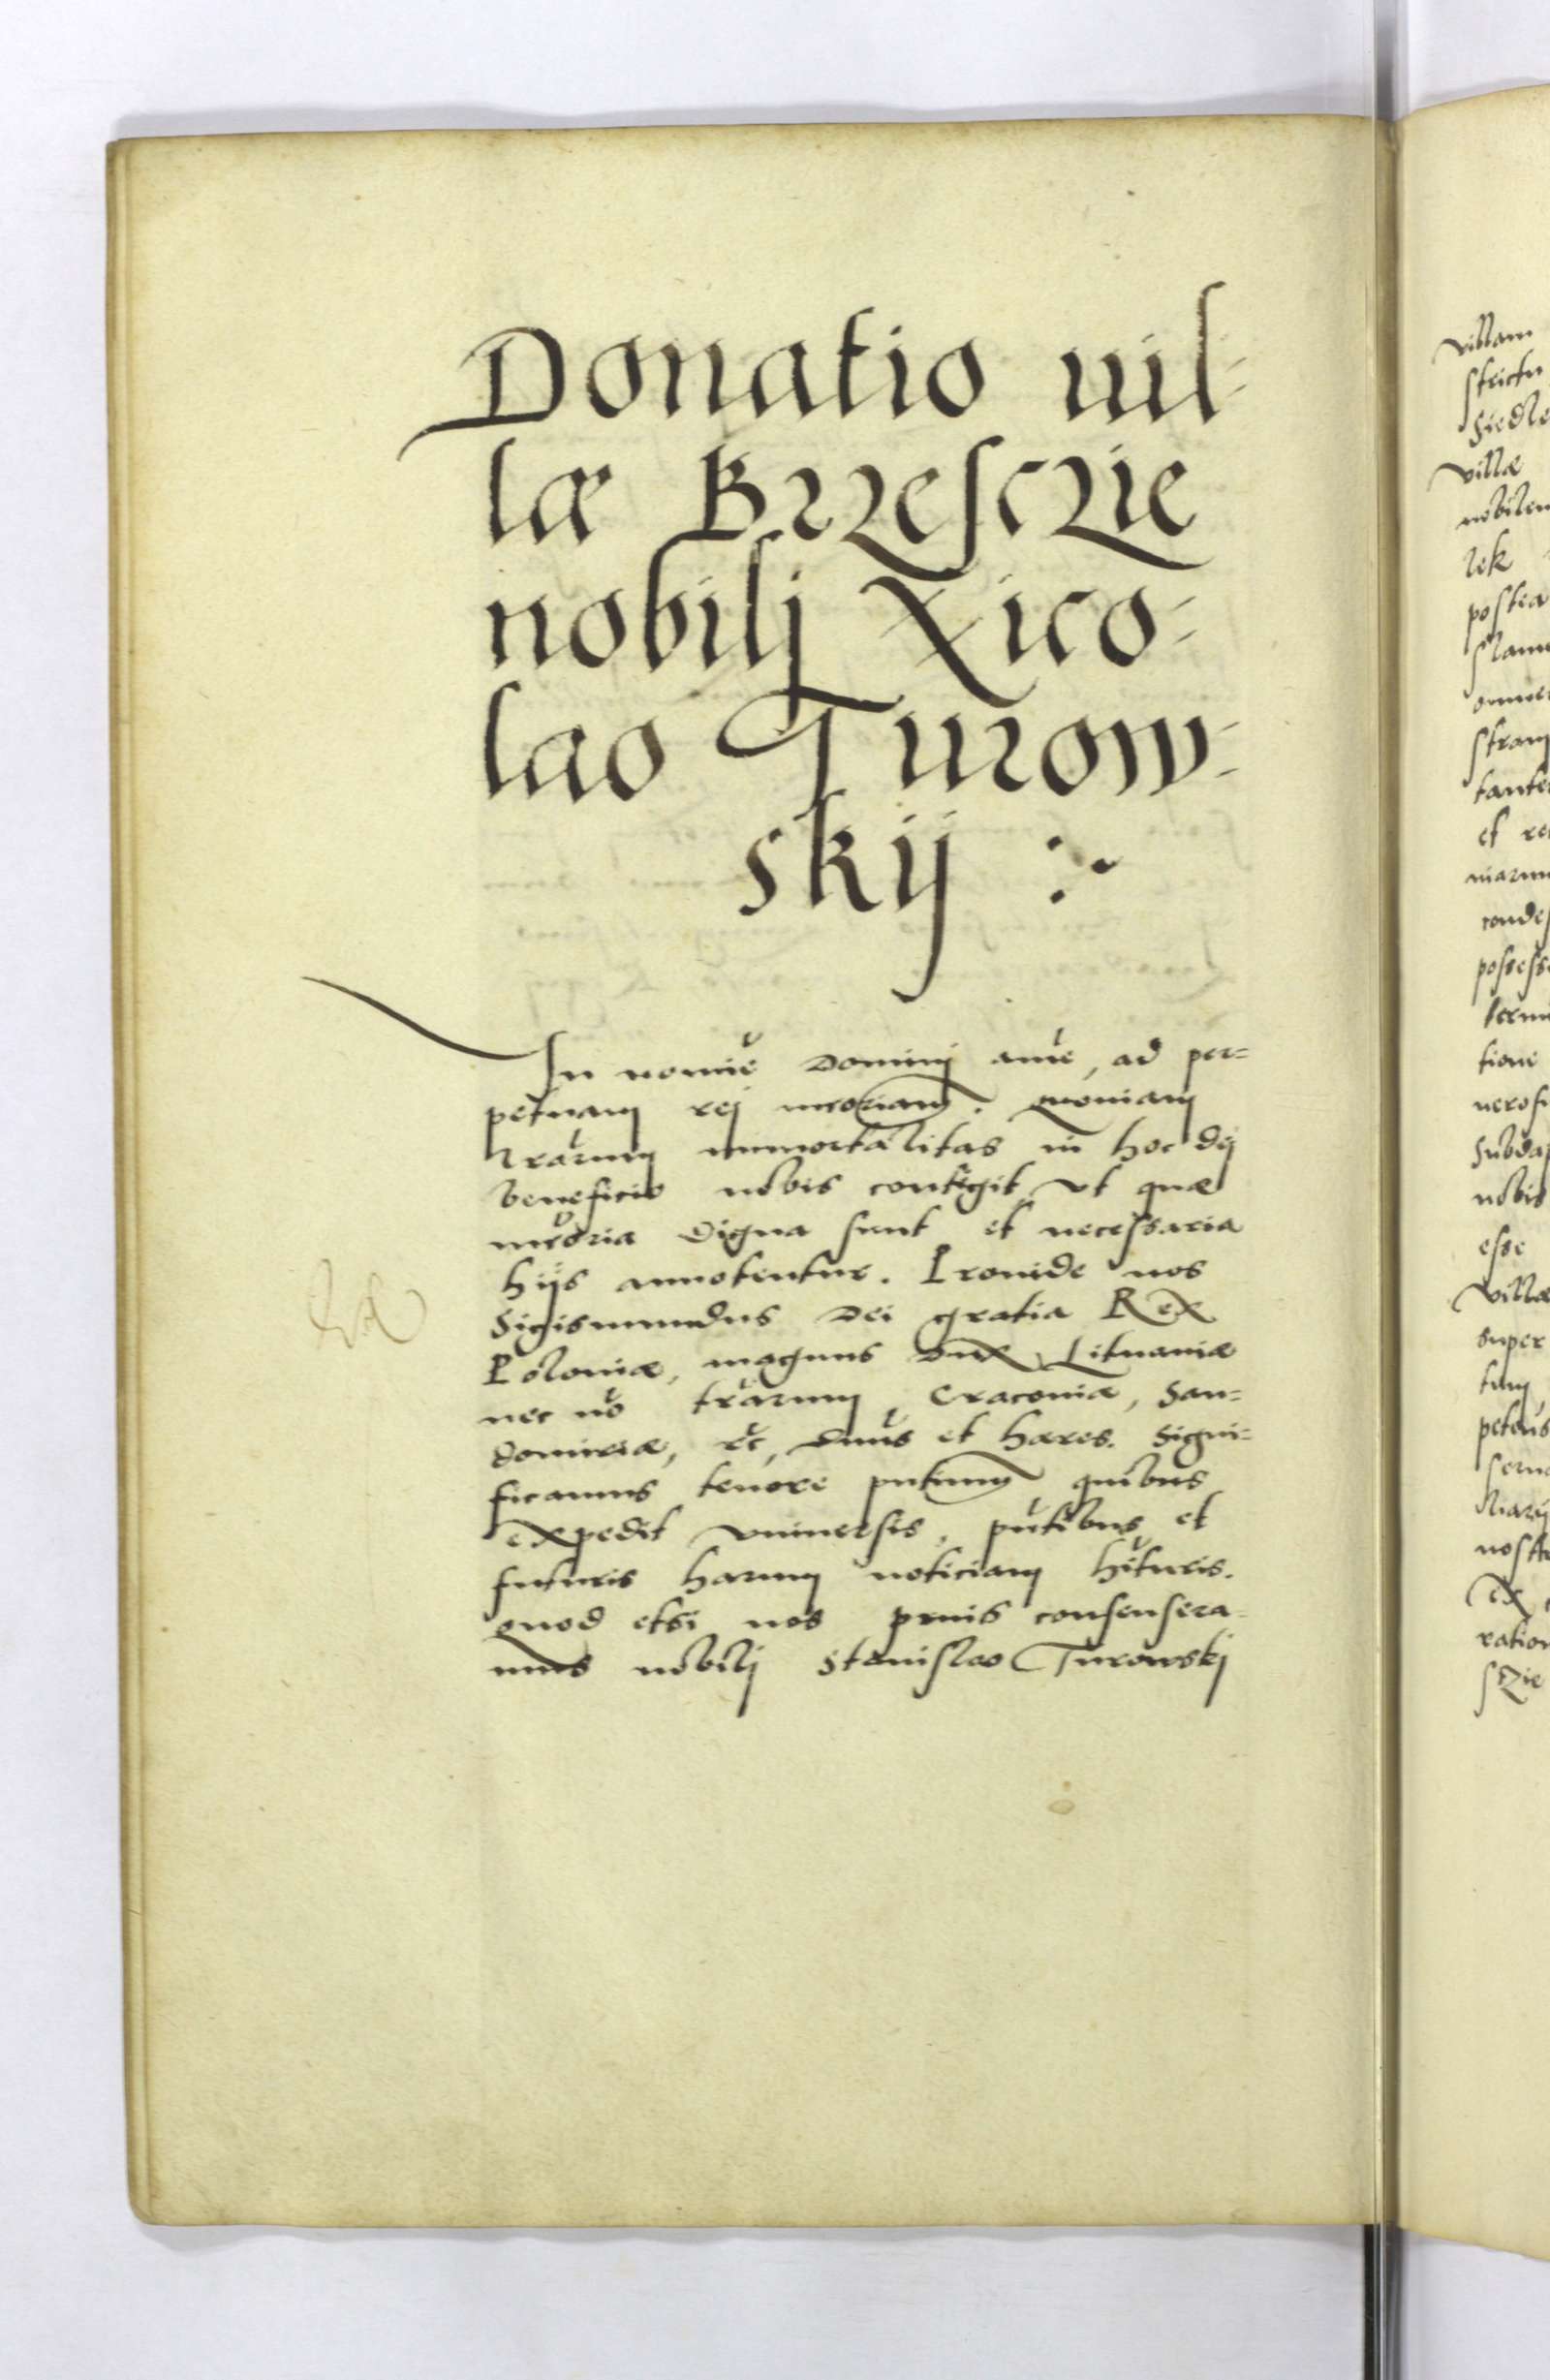 Donatio uil-
læ Brzesczie
nobilj Nico-
lao Turow-
skij
In nomie Dominj ame, ad per-
petuam rej mroriam. Quoniam
lrarum immortalitas in hoc dej
beneficio nobis contigit, vt quæ
mroria digna sunt et necessaria
hijs annotentur. Proinde nos
Sigismundus Dei gratia Rex
Poloniæ, magnus Dux Lituaniæ
nec no trarum, Cracoviæ, San-
domiriæ, rc, Dnus et hæres. Signi-
ficamus tenore pntium quibus
expedit vniuersis, pntibus et
futuris harum noticiam hituris.
Quod etsi nos prius consensera-
mus nobilj Stanislao Turowskj
villam
strictu
Siedle
villæ
nobilem
lek
postea
et re
possess
tione
nobis
esse
villæ
super
petens
nostr
ex
ration
sczie